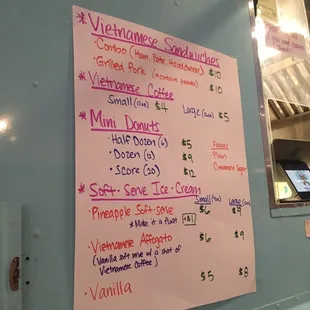 * Vietnamese Sandwiches
• Combo (Ham, Pate, Headcheese) $10
• Grilled Pork (*contains peanuts) $10
* Vietnamese Coffee
Small (12oz) $4 Large (16oz) $5
* Mini Donuts
• Half Dozen (6) $5
• Dozen (12) $9
• Score (20) $12
Plain
Cinnamon Sugar
* Soft-Serve Ice-Cream
Small Large
• Pineapple Soft-serve $6 $9
* Make it a float +$1
• Vietnamese Affogato $6 $9
(Vanilla soft serve w/ a shot of
Vietnamese Coffee)
• Vanilla $5 $8